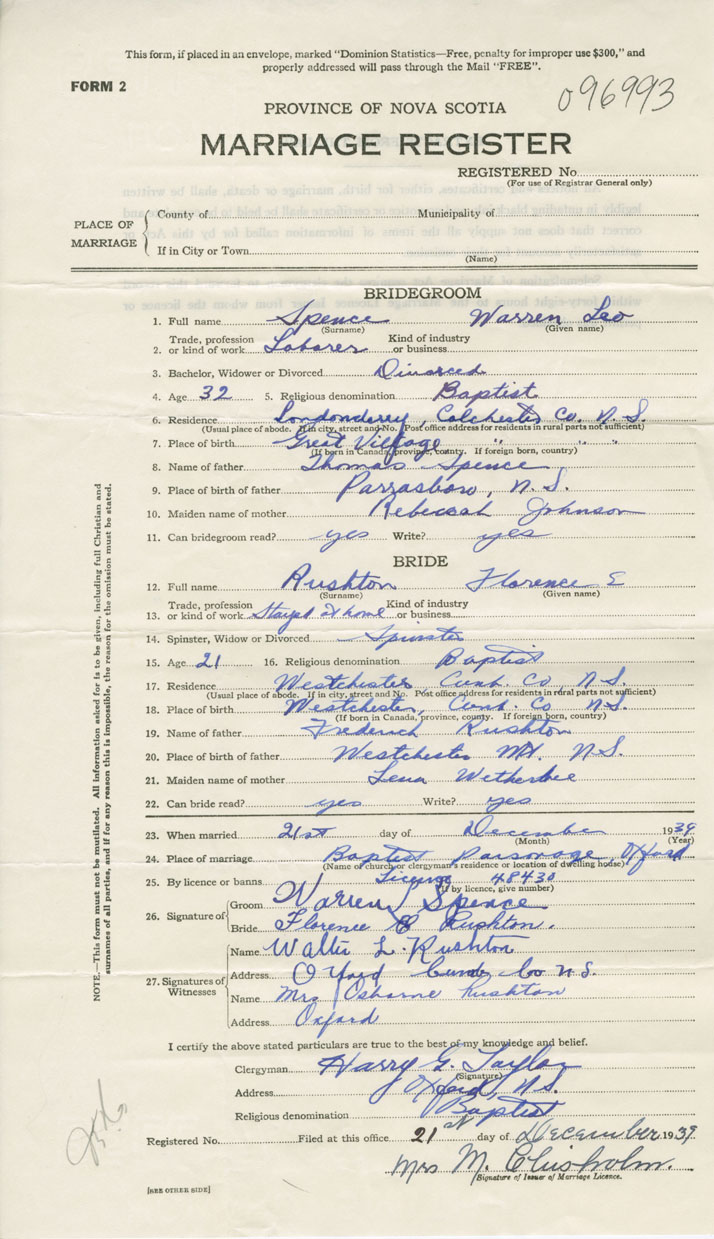 This form, if placed in an envelope, marked "Dominion Statistics—Free, penalty for improper use $300," and
properly addressed will pass through the Mail "FREE".
FORM 2
096993
PROVINCE OF NOVA SCOTIA
MARRIAGE REGISTER
REGISTERED No.
(For use of Registrar General only)
PLACE OF MARRIAGE
County of Municipality of
If in City or Town
(Name)
BRIDEGROOM
1. Full name Spence Warren Leo
(Surname) (Given name)
Trade, profession Kind of industry
2. or kind of work Laborer or business
3. Bachelor, Widower or Divorced Divorced
4. Age 32 5. Religious denomination Baptist
6. Residence Londonderry, Colchester Co. N.S.
(Usual place of abode. If in city, street and No. Post office address for residents in rural parts not sufficient)
7. Place of birth Great Village " " "
(If born in Canada, province, county. If foreign born, country)
8. Name of father Thomas Spence
9. Place of birth of father Parrsboro, N.S.
10. Maiden name of mother Rebeccah Johnson
11. Can bridegroom read? yes Write? yes
BRIDE
12. Full name Rushton Florence E
(Surname) (Given name)
Trade, profession Kind of industry
13. or kind of work Stayed at home or business
14. Spinster, Widow or Divorced Spinster
15. Age 21 16. Religious denomination Baptist
17. Residence Westchester Cumb. Co N.S.
(Usual place of abode. If in city, street and No. Post office address for residents in rural parts not sufficient)
18. Place of birth Westchester, Cumb. Co N.S.
(If born in Canada, province, county. If foreign born, country)
19. Name of father Frederick Rushton
20. Place of birth of father Westchester Mt. N.S.
21. Maiden name of mother Lena Wetherbee
22. Can bride read? yes Write? yes
23. When married 21st day of December 1939
(Month) (Year)
24. Place of marriage Baptist Parsonage, Oxford
(Name of church or clergyman's residence or location of dwelling house)
25. By licence or banns License 48430
(If by licence, give number)
26. Signature of
Groom Warren Spence
Bride Florence E Rushton.
27. Signatures of Witnesses
Name Walter L. Rushton
Address Oxford Cumb Co N.S.
Name Mrs Osborne Rushton
Address Oxford
I certify the above stated particulars are true to the best of my knowledge and belief.
Clergyman Harry G. Taylor
(Signature)
Address Oxford, N.S.
Religious denomination Baptist
Registered No. Filed at this office 21st day of December 1939
Mrs M. Chisholm.
Signature of Issuer of Marriage Licence.
[SEE OTHER SIDE]
NOTE.—This form must not be mutilated. All information asked for is to be given, including full Christian and
surnames of all parties, and if for any reason this is impossible, the reason for the omission must be stated.